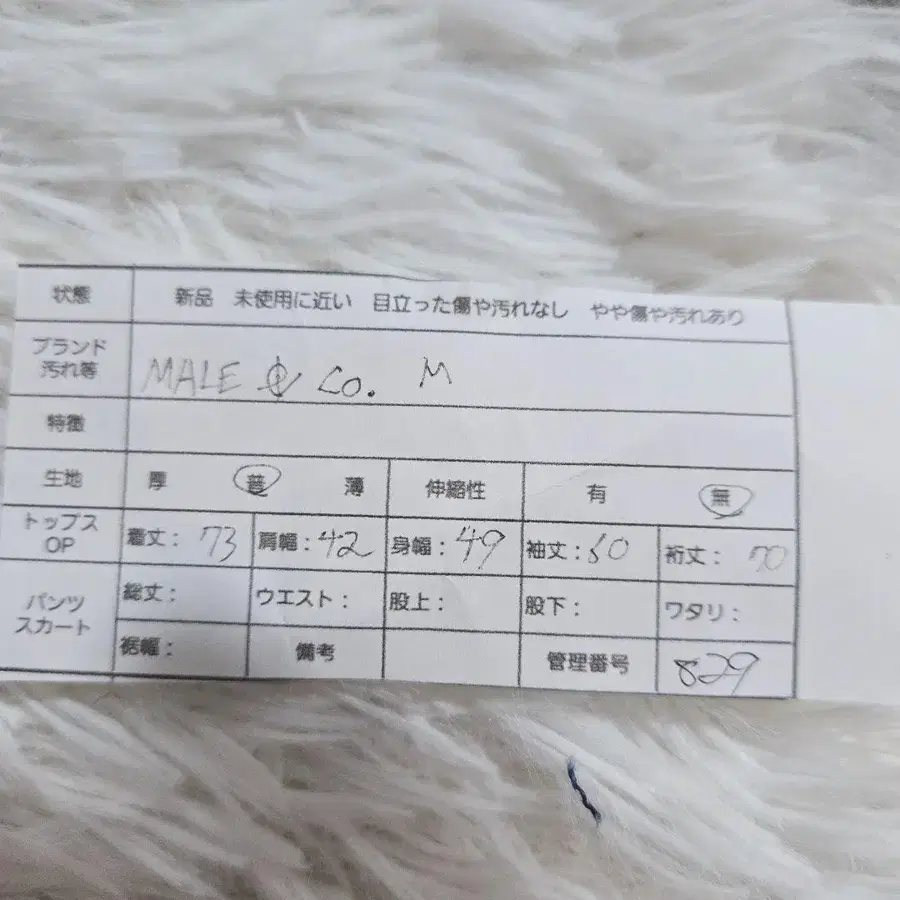 状態 新品 未使用に近い 目立った傷や汚れなし やや傷や汚れあり
ブランド
汚れ等 MALE & Co. M
特徴
生地 厚 普 薄 伸縮性 有 無
トップス
OP 着丈: 73 肩幅: 42 身幅: 49 袖丈: 60 裄丈: 70
パンツ
スカート 総丈: ウエスト: 股上: 股下: ワタリ:
裾幅: 備考 管理番号 829